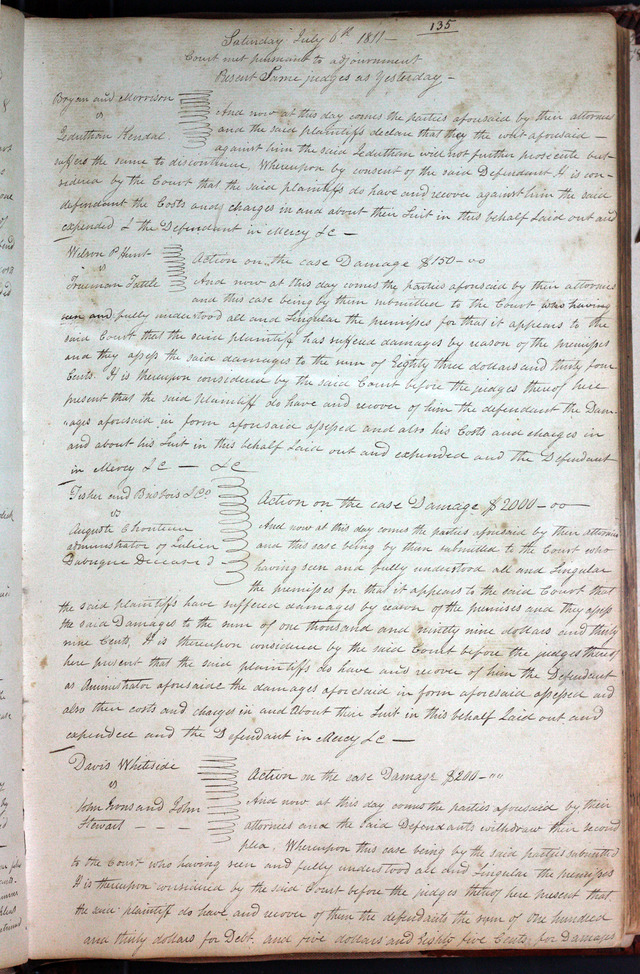 135
Saturday July 6th 1811 —
Court met pursuant to adjournment
Present Same judges as Yesterday —
Bryan and Morrison
vs
Jeduthan Kendal
And now at this day comes the parties aforesaid by their attornies
and the said plaintiffs declare that they the writ aforesaid —
against him the said Jeduthan will not further prosecute but
suffers the same to discontinue, Whereupon by consent of the said Defendant It is con-
sidered by the Court that the said plaintiffs do have and recover against him the said
defendant the Costs and charges in and about their Suit in this behalf Laid out and
expended & the Defendant in Mercy &c —
Wilson P Hunt
vs
Freeman Tuttle
Action on the case Damage $150-00
And now at this day comes the parties aforesaid by their attornies
and this case being by them submitted to the Court who having
seen and fully understood all and Singular the premisses for that it appears to the
said Court that the said plaintiff has suffered damages by reason of the premisses
and they assess the said damages to the sum of Eighty three dollars and thirty four
Cents. It is thereupon considered by the said Court before the judges thereof here
present that the said plaintiff do have and recover of him the defendant the Dam-
"ages aforesaid in form aforesaid assessed and also his Costs and charges in
and about his Suit in this behalf Laid out and expended and the Defendant
in Mercy &c — &c
Fisher and Busbois & Co
vs
Auguste Chouteau
administrator of Julien
Dubuque Deceased
Action on the case Damage $2000-00
And now at this day comes the parties aforesaid by their attornies
and this case being by them submitted to the Court who
having seen and fully understood all and Singular
the premisses for that it appears to the said Court that
the said plaintiffs have suffered damages by reason of the premises and they assess
the said Damages to the sum of one thousand and ninety nine dollars and thirty
nine Cents, It is thereupon considered by the said Court before the judges thereof
here present that the said plaintiffs do have and recover of him the Defendant
as Aministrator aforesaid the damages aforesaid in form aforesaid assessed and
also their costs and charges in and about their Suit in this behalf Laid out and
expended and the Defendant in Mercy &c —
Davis Whiteside
vs
John Irons and John
Stewart — — —
Action on the case Damage $200-""
And now at this day comes the parties aforesaid by their
attornies and the said Defendants withdraw their second
plea, Whereupon this case being by the said parties submitted
to the Court who having seen and fully understood all and Singular the premisses
It is thereupon considered by the said Court before the judges thereof here present that
the said plaintiff do have and recover of them the defendants the sum of One hundred
and thirty dollars for Debt, and five dollars and Eighty five Cents for Damages